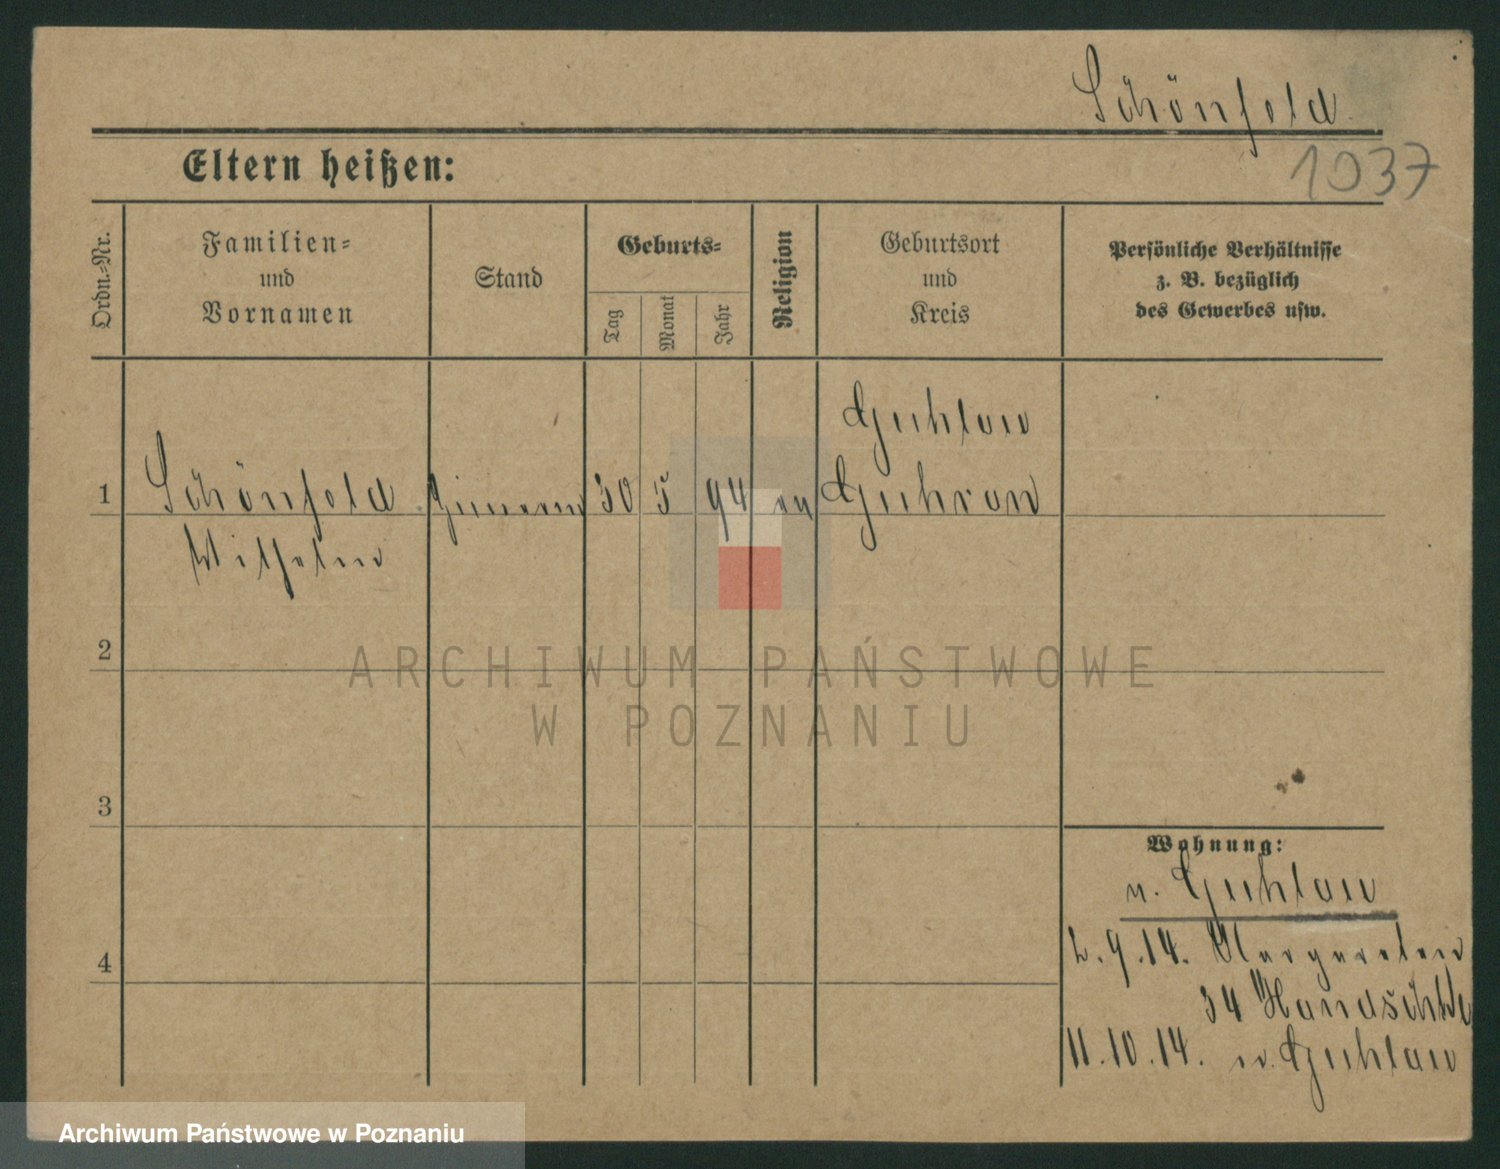 Schönfeld
Eltern heißen:
1037
Ordn.-Nr.
Familien-
und
Vornamen
Stand
Geburts-
Tag
Monat
Jahr
Religion
Geburtsort
und
Kreis
Persönliche Verhältnisse
z. B. bezüglich
des Gewerbes usw.
Guhlau
1 Schönfeld 30 5 94 ev Guhrau
Wilhelm
2
ARCHIWUM PAŃSTWOWE
W POZNANIU
3
Wohnung:
n. Guhlau
4
2.9.14. Margareten
34 Handschke
11.10.14. n. Guhlau
Archiwum Państwowe w Poznaniu